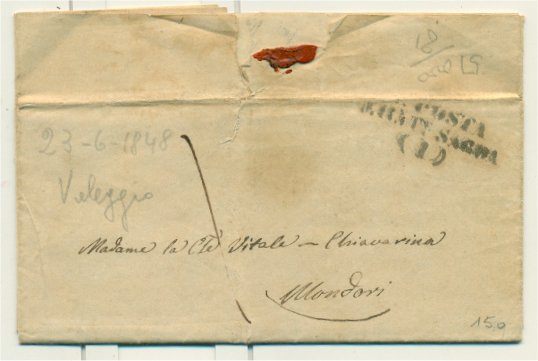 23-6-1848
Valeggio
POSTA
MILITE SARDA
(1)
Madame la Cte Vitale – Chiavarina
Mondovi
150